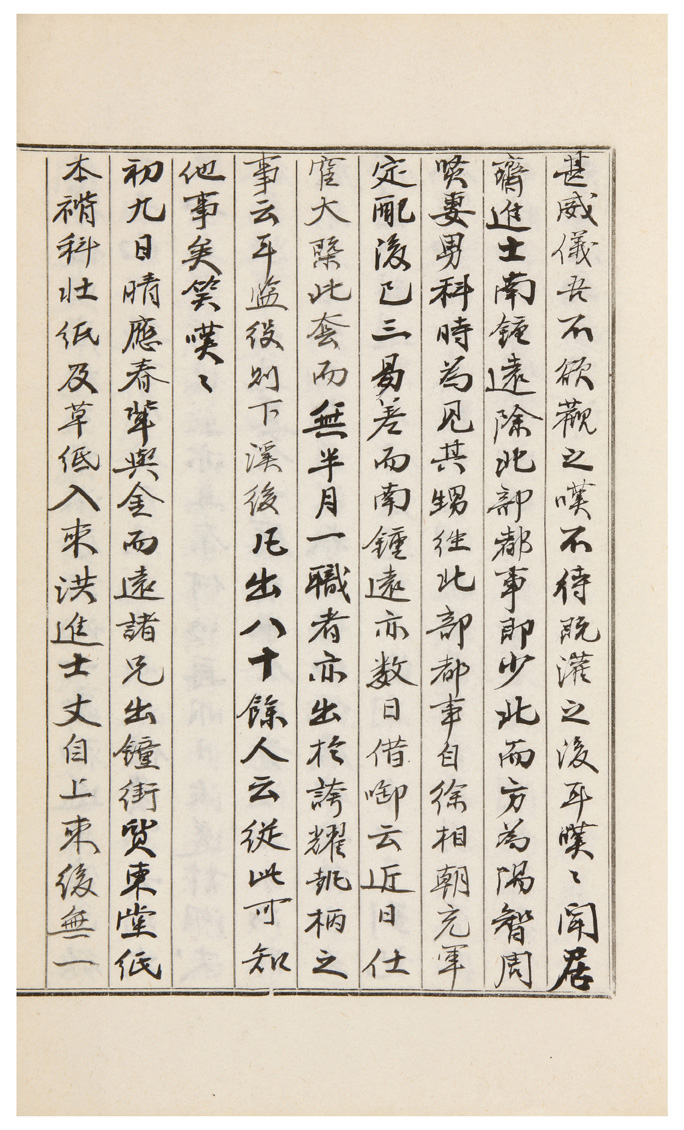 甚威儀吾不欲觀之嘆不待既灌之後耳嘆〻閒居
齋進士南鍾遠除北部都事即少北而方為陽智周
賢妻男科時為見其甥徃北部都事自徐相朝充軍
定配後已三易差而南鍾遠亦数日借啣云近日仕
宦大槩此套而無半月一職者亦出於誇耀執柄之
事云耳監役則下溪後凡出八十餘人云從此可知
他事矣笑嘆〻
初九日晴應春輩與金而遠諸兄出鐘街貿東堂紙
本禙科壮紙及草紙入來洪進士丈自上來後無一